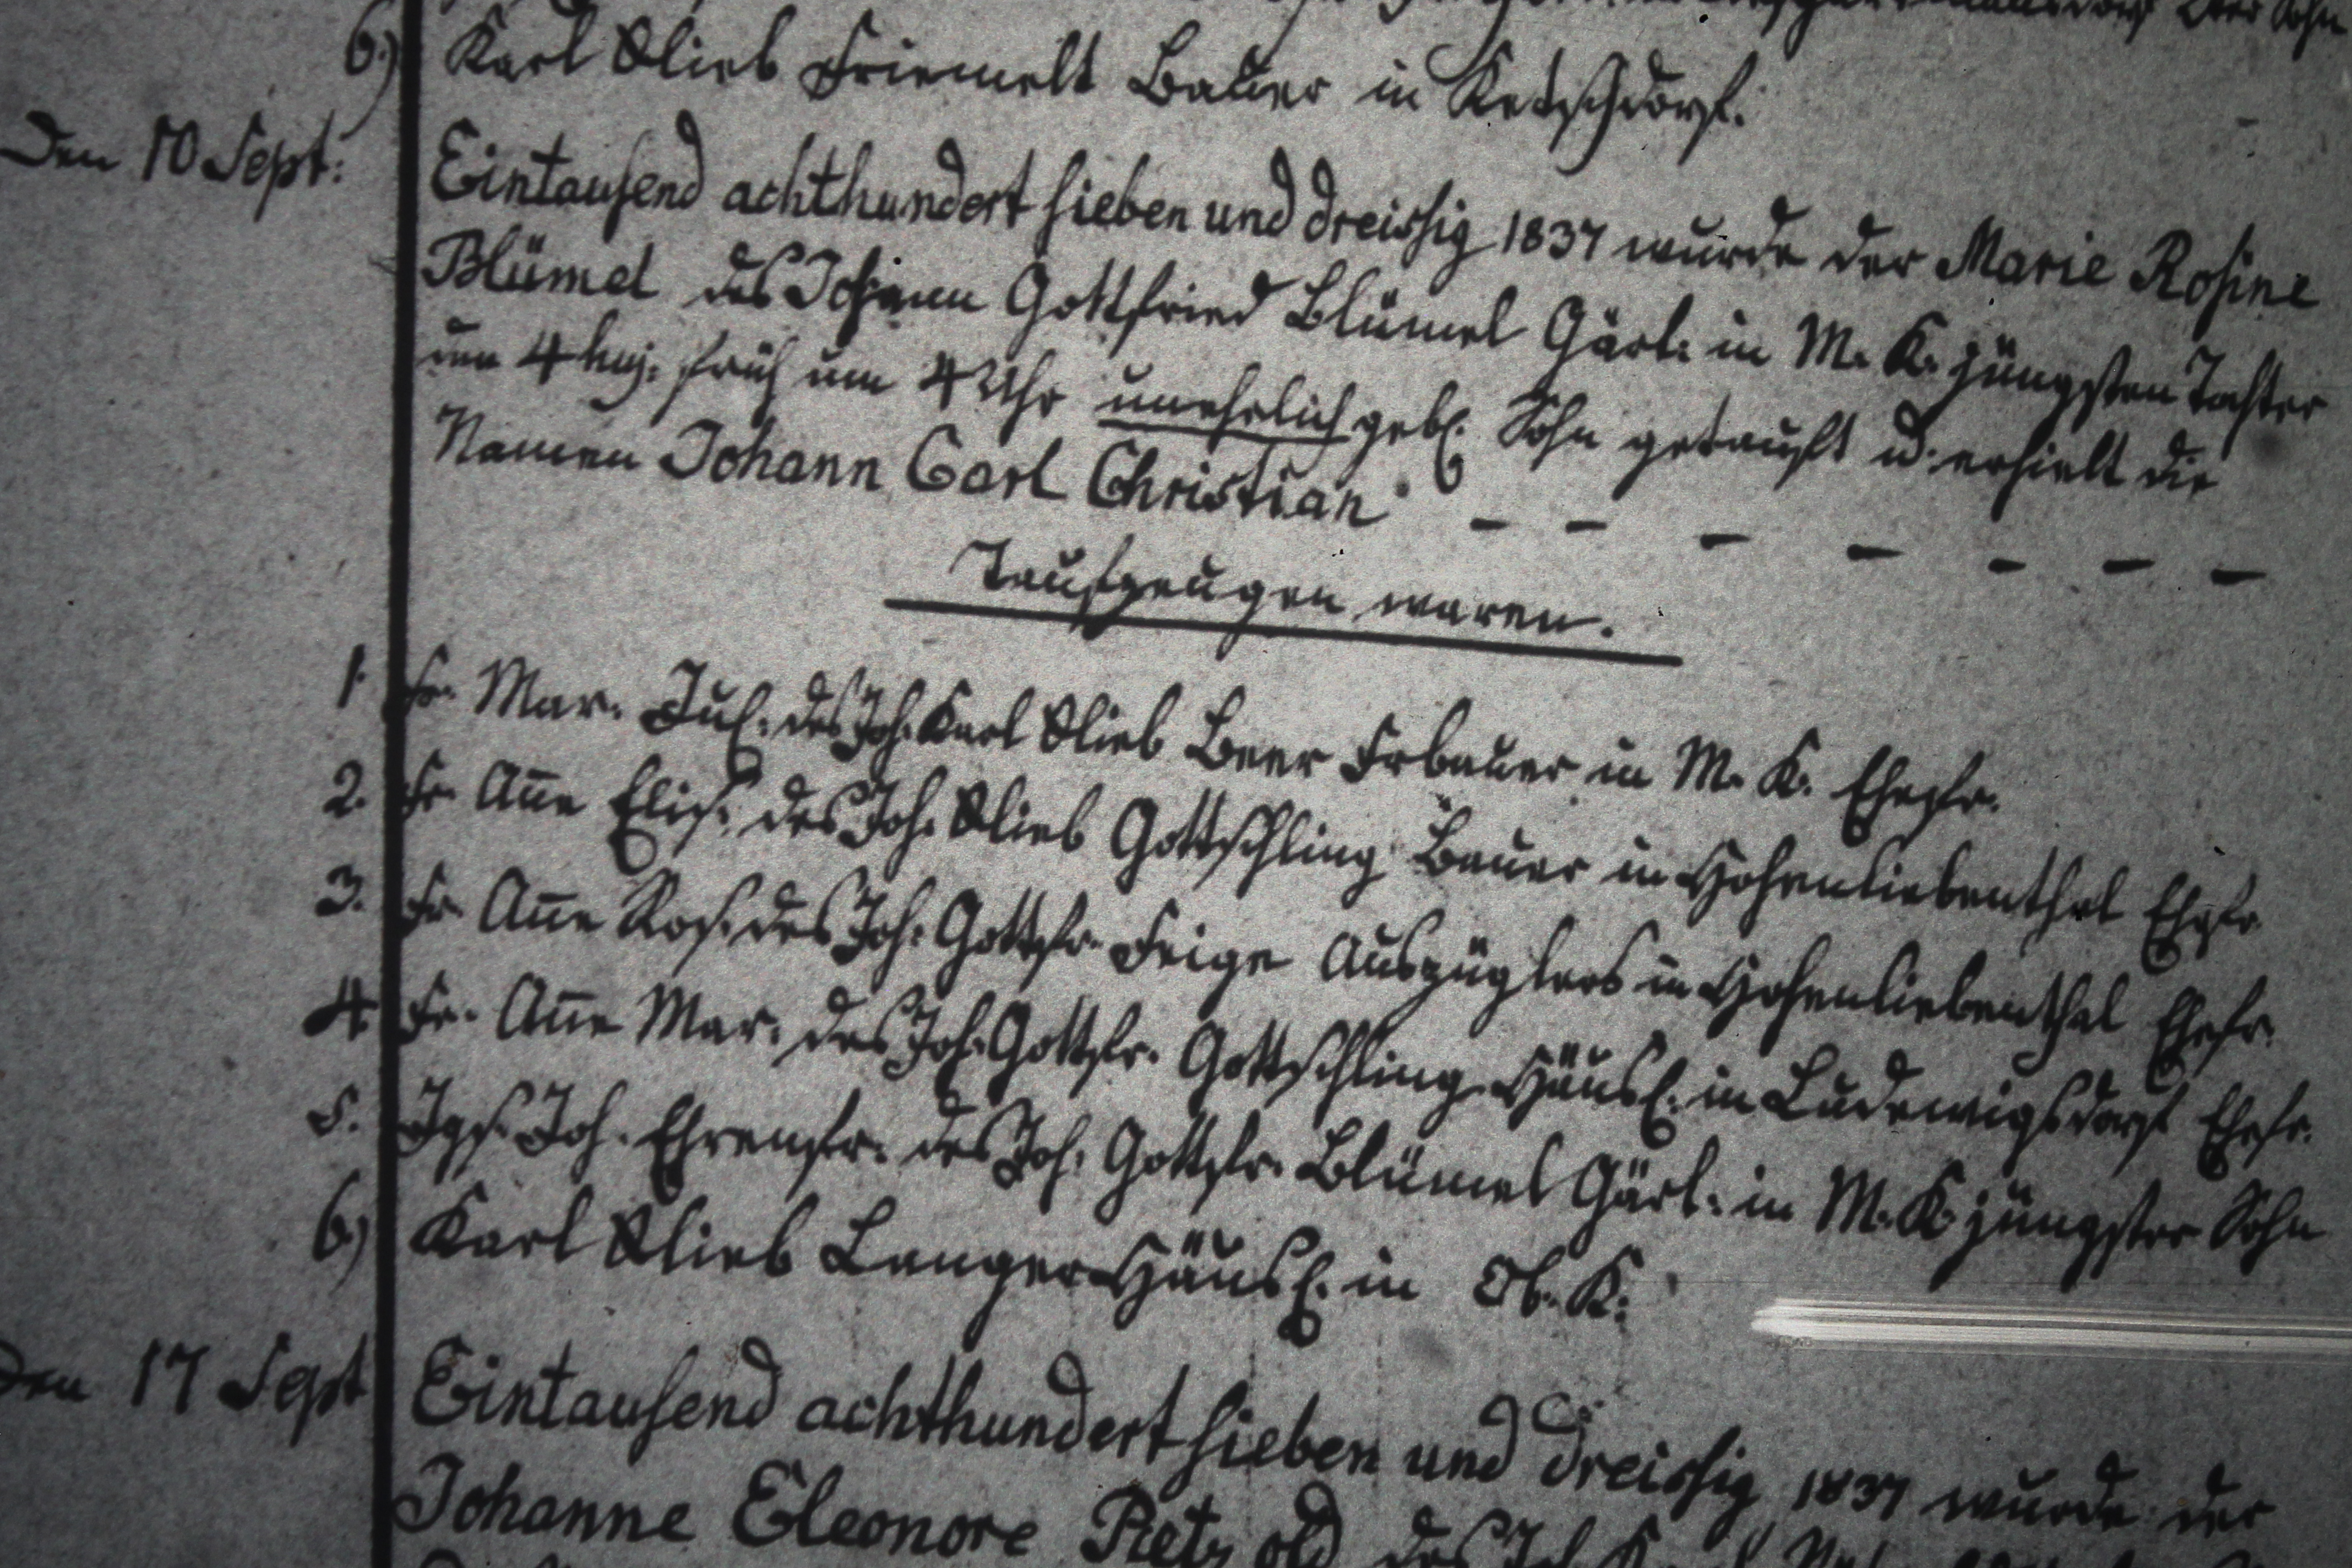 6.) Karl Glieb Friemelt Bauer in Ketschdorf.
Den 10 Sept: Eintausend achthundert sieben und dreissig 1837 wurde der Marie Rosine
Blümel des Johann Gottfried Blümel Gärt: in M. K. jüngsten Tochter
um 4 huj. früh um 4 Uhr unehrlich geb. Sohn getauft u. erhielt die
Namen Johann Carl Christian – – – – – – –
Taufzeugen waren.
1. Fr. Mar. Jul. des Joh. Karl Glieb Beer Erbauer in M. K. Ehefr.
2. Fr. Anne Elis. des Joh. Glieb Gottschling Bauer in Hohenliebenthal Ehefr
3. Fr. Anne Ros. des Joh. Gottfr. Feige Auszüglers in Hohenliebenthal Ehefr.
4. Fr. Anne Mar. des Joh. Gottfr. Gottschling Häusl. in Ludewigsdorf Ehefr.
5. Jgs. Joh. Ehrenfr. des Joh. Gottfr. Blümel Gärt. in M. K. jüngster Sohn
6.) Karl Glieb Langer Häusl. in Ob. K.
Den 17 Sept Eintausend achthundert sieben und dreissig 1837 wurde der
Johanne Eleonore